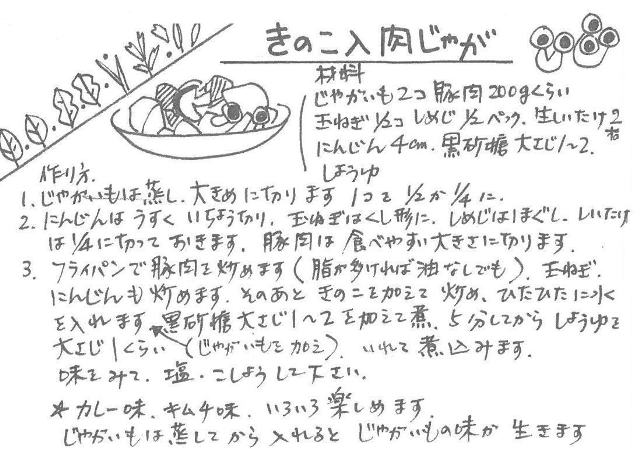 きのこ入肉じゃが
材料
じゃがいも2コ 豚肉200gくらい
玉ねぎ1/2コ しめじ1/2パック、生しいたけ2右
にんじん4cm、黒砂糖 大さじ1~2、
しょうゆ
作り方
1. じゃがいもは蒸し、大きめに切ります 1コを1/2か1/4に、
2. にんじんは うすく いちょう切り、玉ねぎはくし形に、しめじはほぐし、しいたけ
は1/4に切って おきます。豚肉は 食べやすい大きさに切ります。
3. フライパンで豚肉を炒めます(脂が多ければ油なしでも)、玉ねぎ、
にんじんも 炒めます、そのあと きのこを加えて 炒め、ひたひたに水
を入れます 黒砂糖大さじ1~2を加えて煮、5分してから しょうゆを
大さじ1くらい (じゃがいもを加え)、いれて 煮込みます。
味をみて、塩・こしょうして下さい。
*カレー味、キムチ味、いろいろ楽しめます。
じゃがいもは蒸してから 入れると じゃがいもの味が 生きます